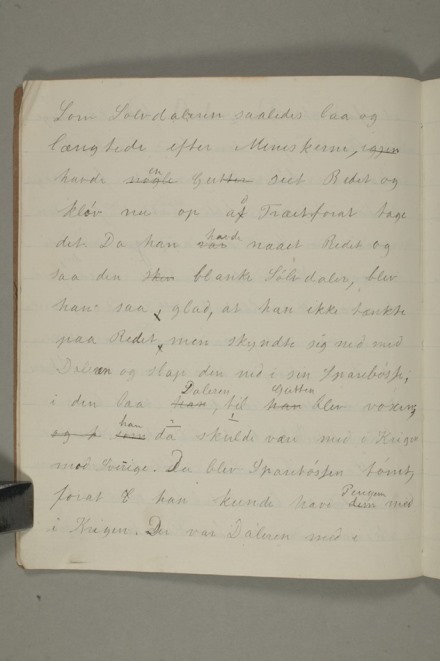 Som Sølvdaleren saaledes laa og
længtede efter Meneskerne, igjen
havde nogle en Gutter seet Redet og
kløv nu op af Træet forat tage
det. Da han var havde naaet Redet og
saa den sken blanke Sølvdaler, blev
han saa glad, at han ikke tænkte
paa Redet, men skyndte sig ned med
Daleren og slap den ned i sen Sparebøsse;
i den laa han Daleren, til han Gutten blev voxen,
og som han da skulde være med i Krigen
mod Sverige. Da blev Sparebøssen tømt,
forat han kunde have dem Pengene med
i Krigen. Der var Daleren med i